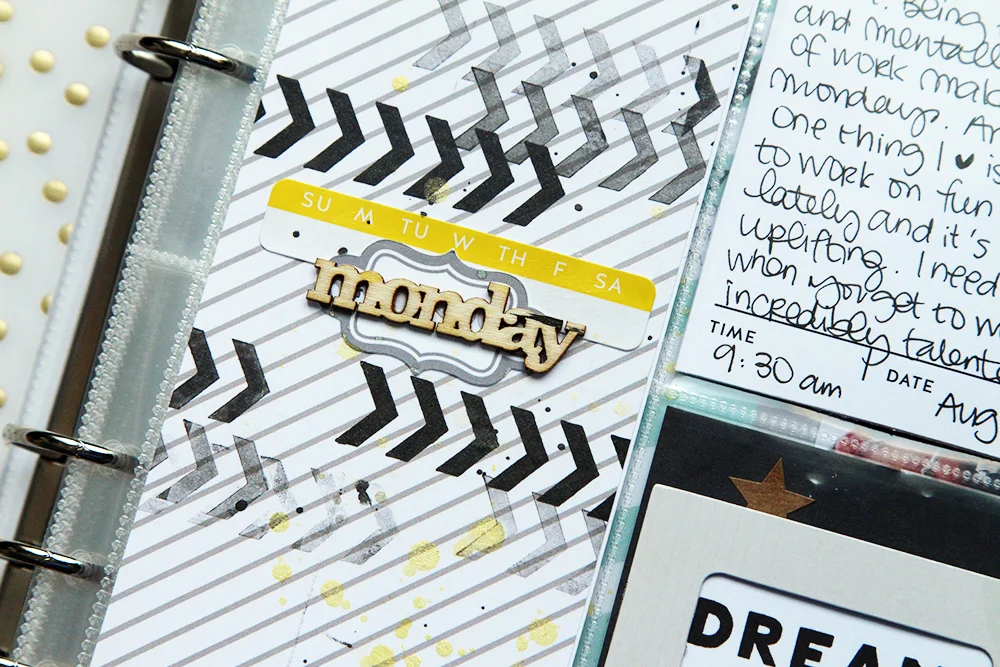 SU M TU W TH F SA
monday
Being
and mentally
of work
mondays.
One thing I ♥ is
to work on fun
lately and it's
uplifting. I need
when you get to
incredibly
TIME
9:30 am
DATE
Aug